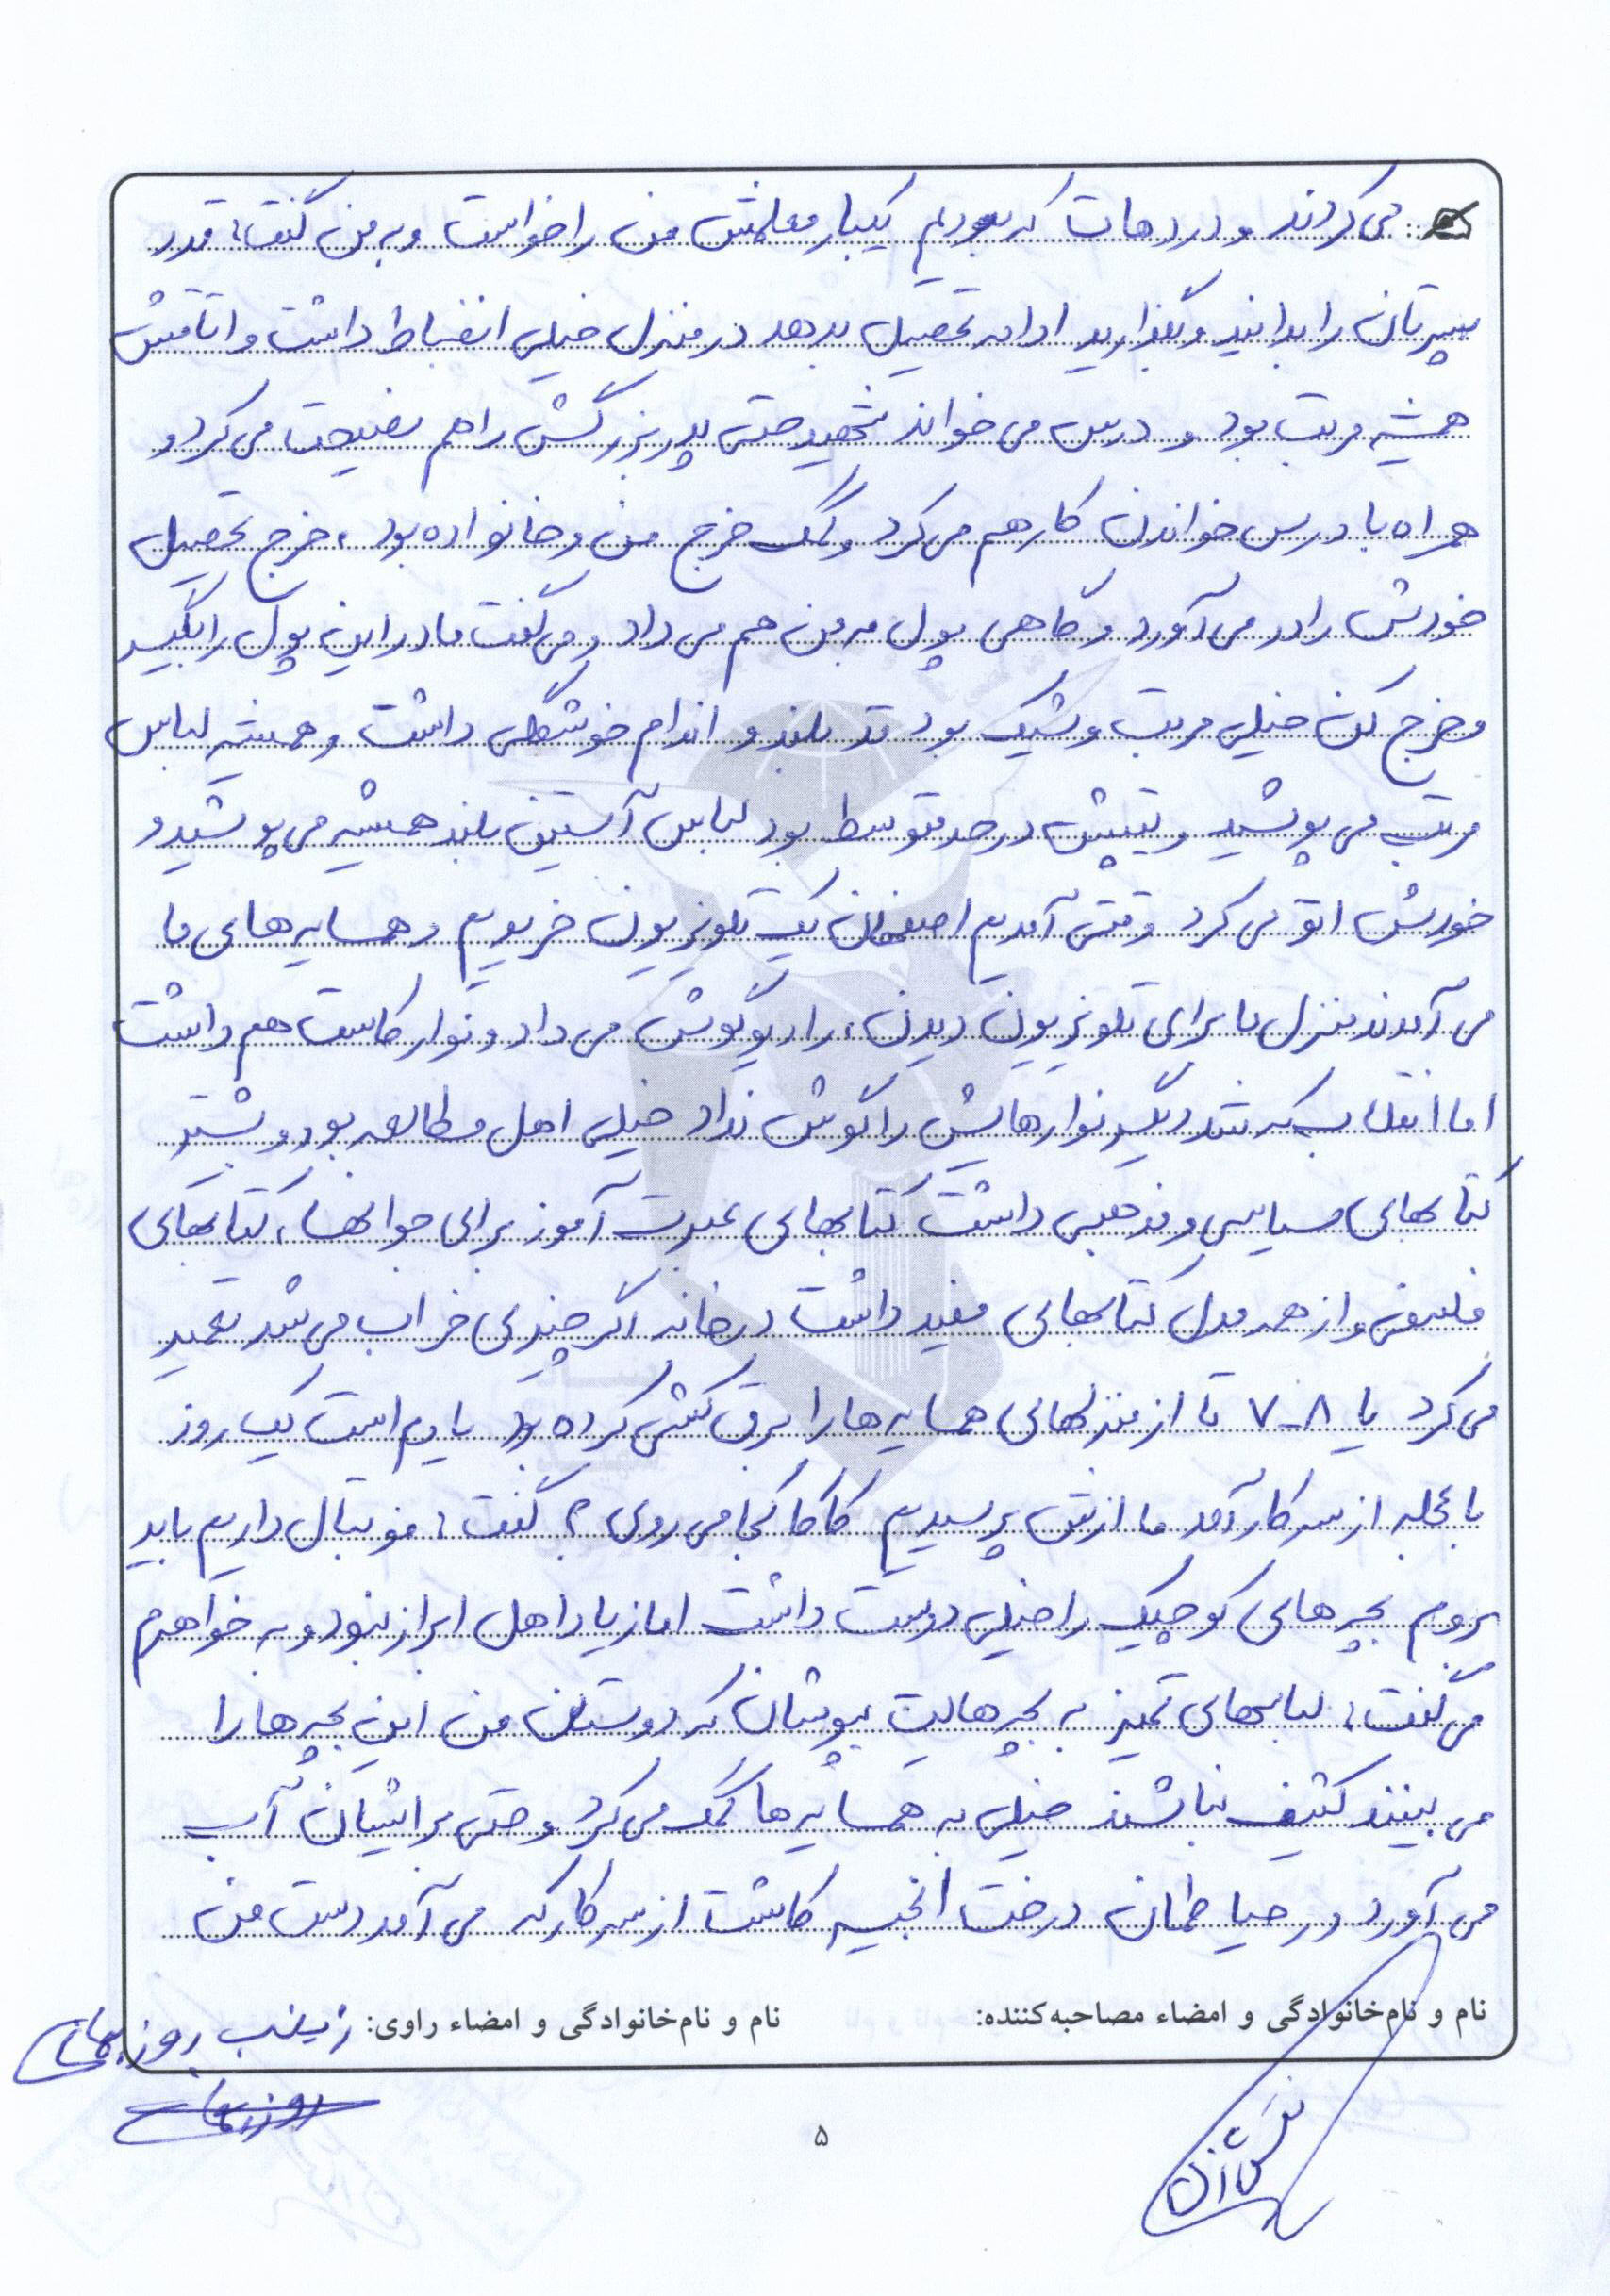 می کردند و در دهات که بودیم یکبار معلمش من را خواست و به من گفت: قدر
پسرتان را بدانید و بگذارید ادامه تحصیل بدهد در منزل خیلی انضباط داشت و اتاقش
همیشه مرتب بود و درس می خواند شهید حتی پدر بزرگش را هم نصیحت می کرد و
همراه با درس خواندن کار هم می کرد و کمک خرج من و خانواده بود، خرج تحصیل
خودش را در می آورد و گاهی پول به من هم می داد و می گفت مادر این پول را بگیر
و خرج کن خیلی مرتب و شیک بود قد بلند و اندام خوشگلی داشت و همیشه لباس
مرتب می پوشید و تیپش در حد متوسط بود لباس آستین بلند همیشه می پوشید و
خودش اتو می کرد وقتی آمدیم اصفهان یک تلویزیون خریدیم و همسایه های ما
می آمدند منزل ما برای تلویزیون دیدن، رادیو گوش می داد و نوار کاست هم داشت
اما انقلاب که شد دیگر نوارهایش را گوش نداد خیلی اهل مطالعه بود و بیشتر
کتابهای سیاسی و مذهبی داشت کتابهای عبرت آموز برای جوانها، کتابهای
فلسفی و از همه مدل کتابهای مفید داشت در خانه اگر چیزی خراب می شد تعمیر
می کرد یا ۸-۷ تا از منزلهای همسایه ها را برق کشی کرده بود یادم است یک روز
با عجله از سر کار آمد ما ازش پرسیدیم کاکا کجا می روی؟ گفت: فوتبال داریم باید
بروم بچه های کوچیک را خیلی دوست داشت اما زیاد اهل ابراز نبود و به خواهرم
می گفت: لباسهای تمیز به بچه هایت بپوشان که دوستان من این بچه ها را
می بینند کثیف نباشند خیلی به همسایه ها کمک می کرد و حتی برایشان آب
می آورد در حیاطمان درخت انجیر کاشت از سر کار که می آمد دست من
نام و نام‌خانوادگی و امضاء مصاحبه‌کننده:
نام و نام‌خانوادگی و امضاء راوی: زینب روزبهانی
۵